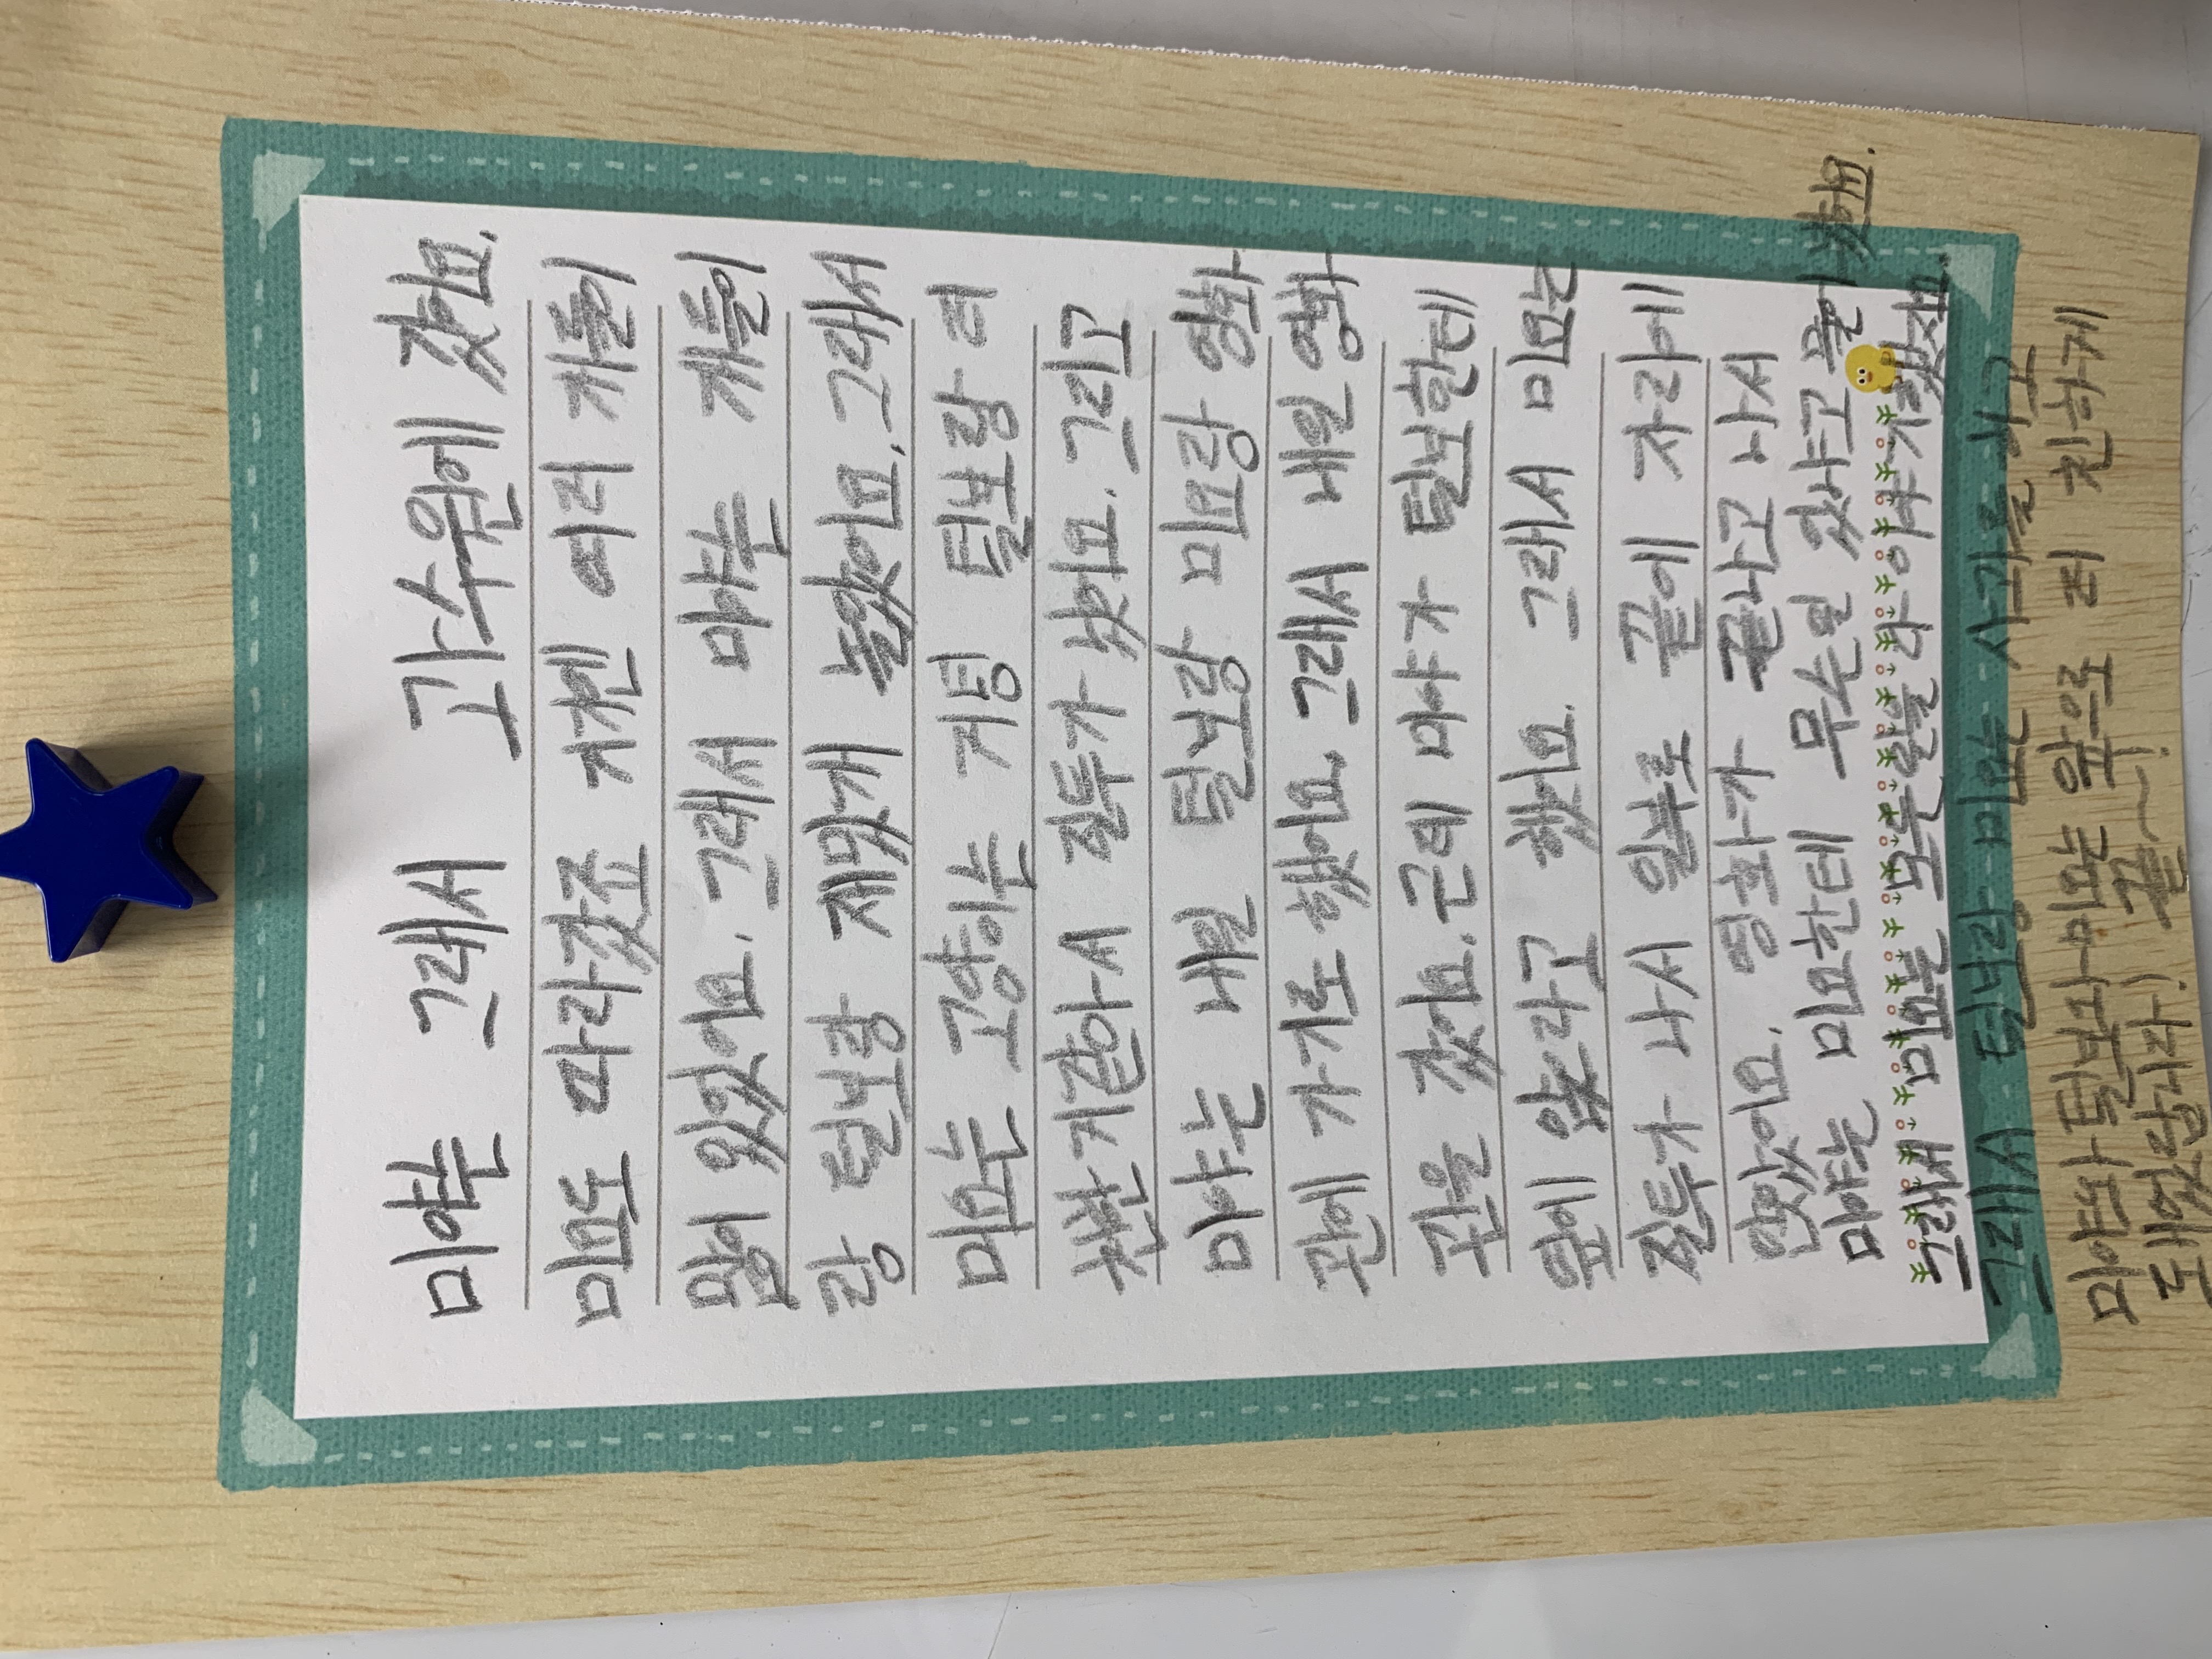 미야는 그래서 과수원에 갔어요.
미요도 따라갔죠 거첸 여러 개들이
많이 있었어요. 그래서 미야는 개들이
랑 털보랑 재밌게 놀았어요. 그래서
미요는 고양이는 거텅 털보랑 더
친한 거같아서 질투가 났어요. 그리고
미야는 내일 털보랑 미요랑 영화
관에 가기로 했어요. 그래서 내일 영화
관을 갔어요. 근데 미야가 털보한테
옆에 앉으라고 했어요. 그래서 미요는
질투가 나서 일부로 끝에 자리에
앉았어요. 영화가 끝나고 나서
미야는 미요한테 무슨일 있냐고 물어봤어요.
그래서 미요는 모든 일을 다 이야기했지요.
그래서 털보랑 미요는 사과를 하고
미야와 털보와 미요는 앞으로 더 친하게
돼었답니다! 끝~!